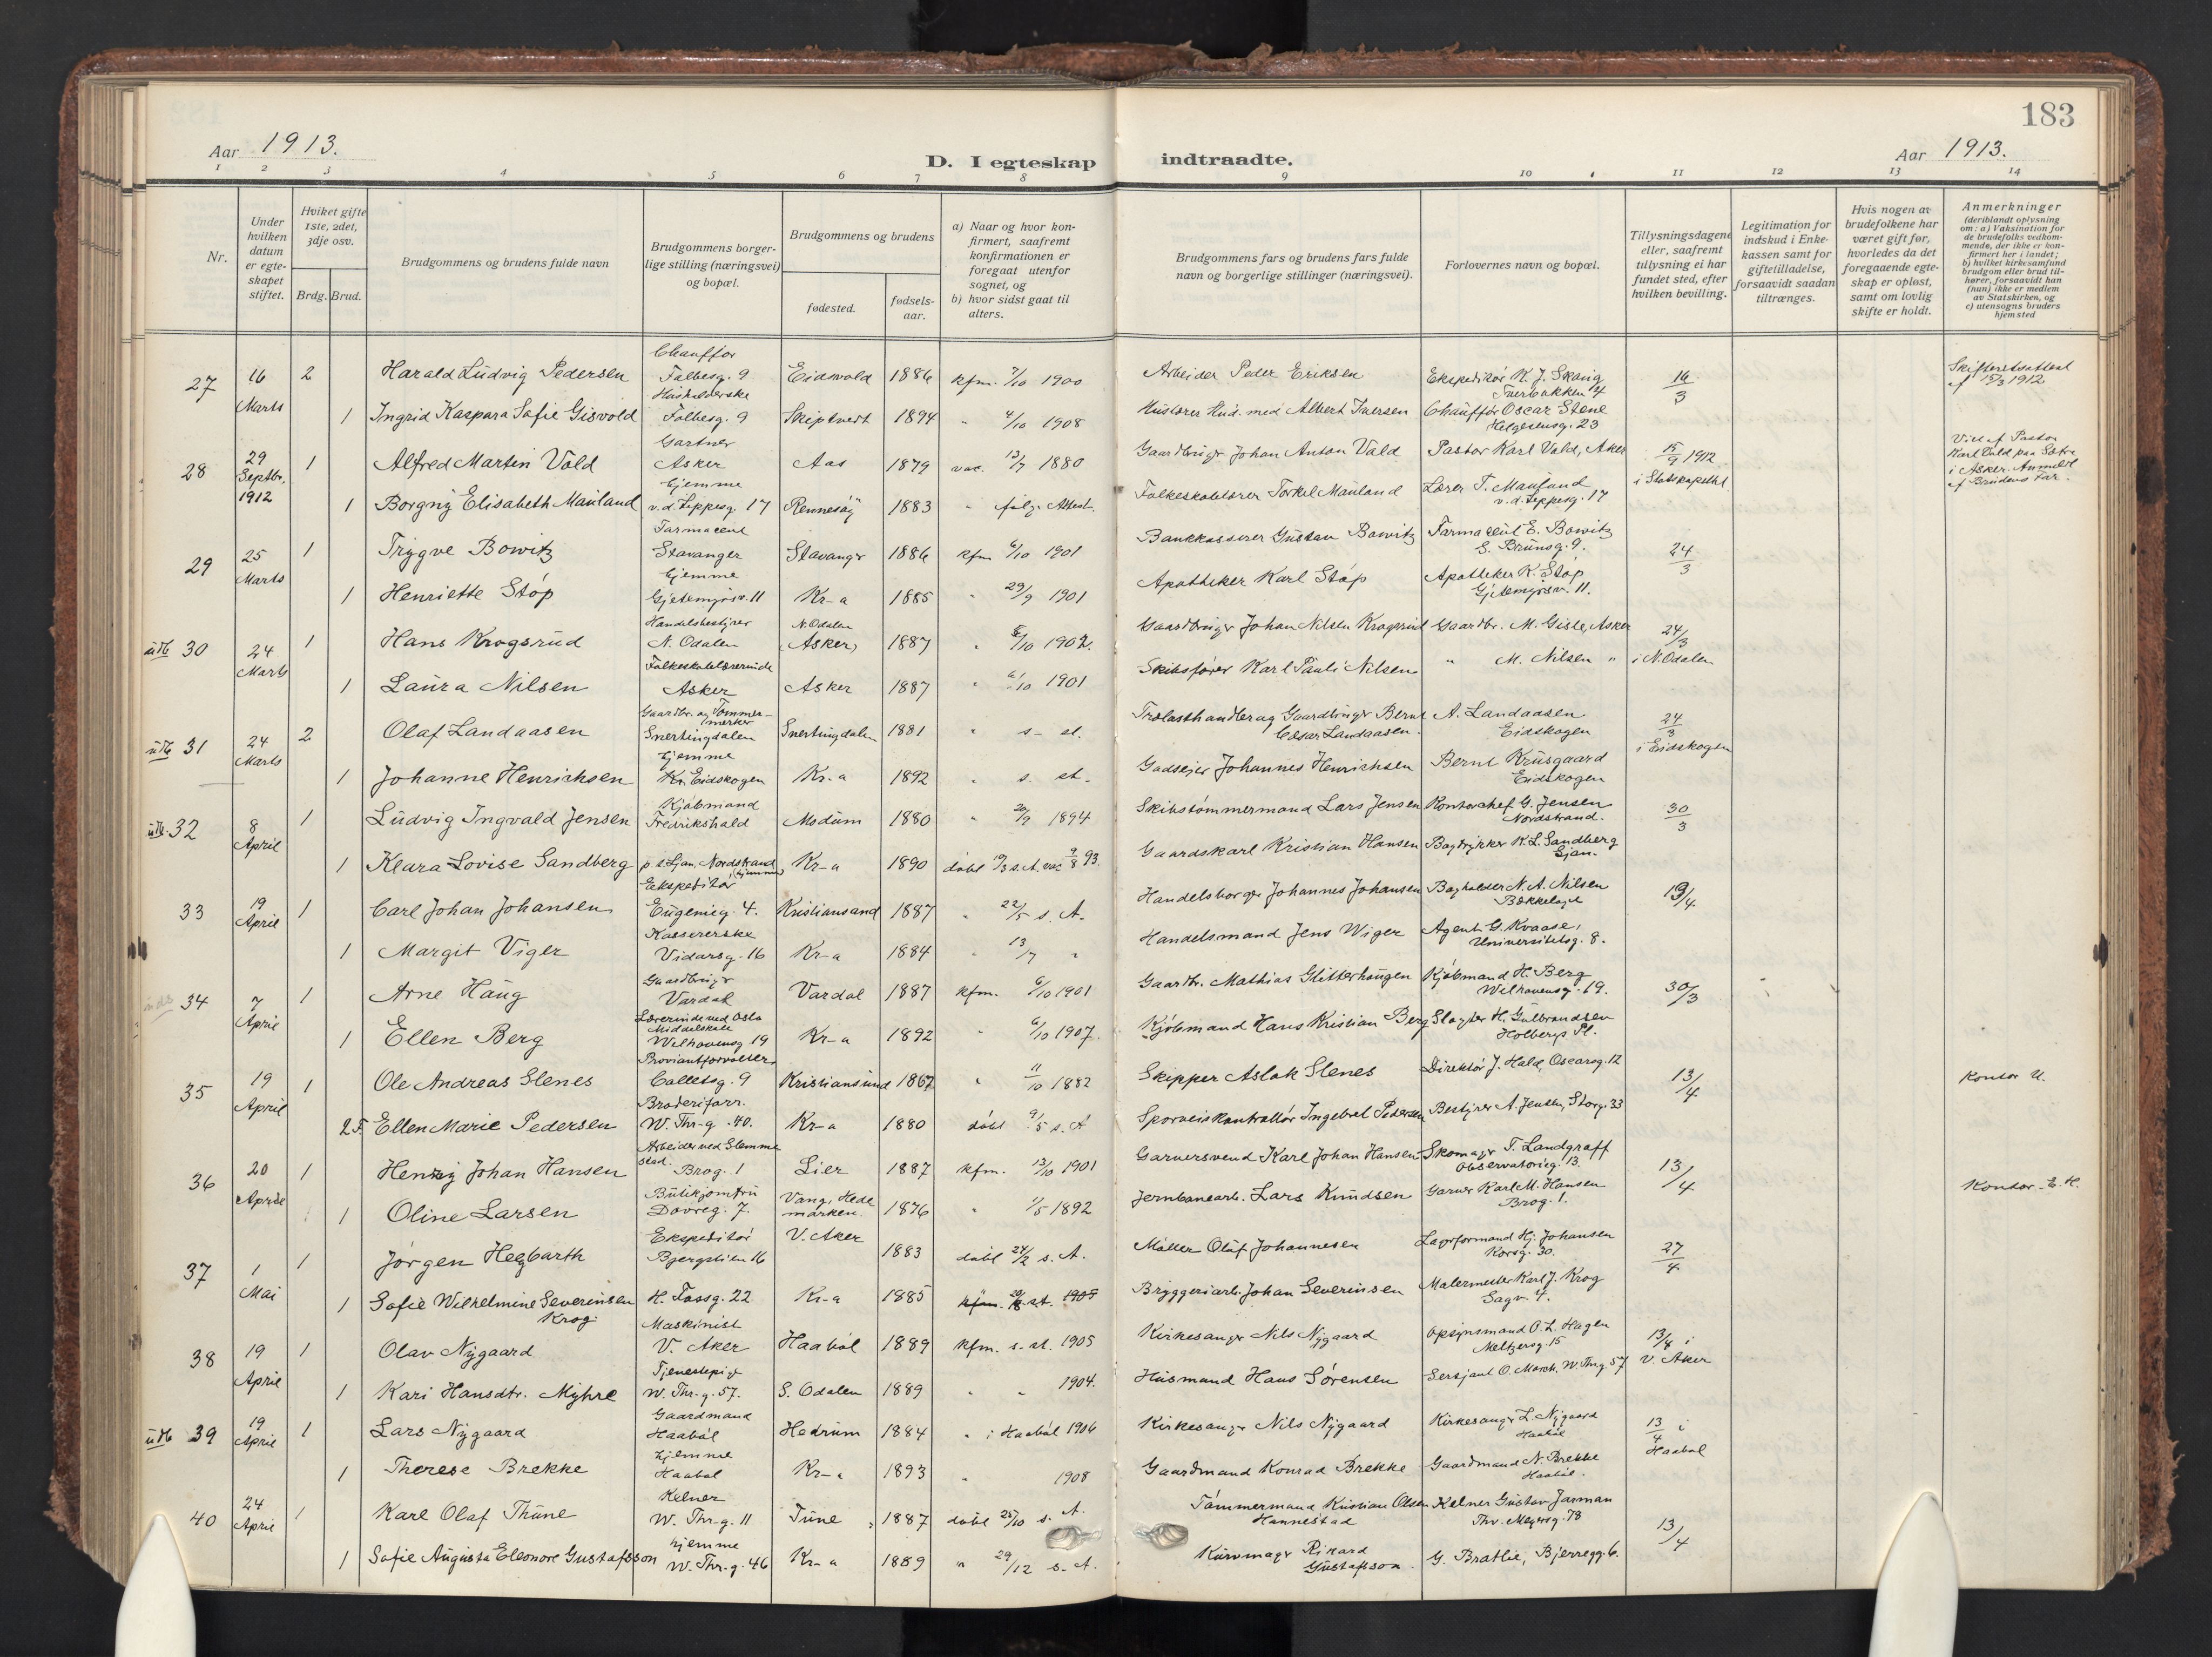 183
Aar 1913.
D. I egteskap indtraadte.
Aar 1913.
1 2 3 4 5 6 7 8 9 10 11 12 13 14
Nr.
Under hvilken datum er egte-skapet stiftet.
Hviket gifte 1ste, 2det, 3dje osv.
Brdg. Brud.
Brudgommens og brudens fulde navn
Brudgommens borger-lige stilling (næringsvei) og bopæl.
Brudgommens og brudens
fødested.
fødsels-aar.
a) Naar og hvor kon-firmert, saafremt konfirmationen er foregaat utenfor sognet, og
b) hvor sidst gaat til alters.
Brudgommens fars og brudens fars fulde navn og borgerlige stillinger (næringsvei).
Forlovernes navn og bopæl.
Tillysningsdagene eller, saafremt tillysning ei har fundet sted, efter hvilken bevilling.
Legitimation for indskud i Enke-kassen samt for giftetilladelse, forsaavidt saadan tiltrænges.
Hvis nogen av brudefolkene har været gift før, hvorledes da det foregaaende egte-skap er opløst, samt om lovlig skifte er holdt.
Anmerkninger
(deriblandt oplysning om: a) Vaksination for de brudefolks vedkom-mende, der ikke er kon-firmert her i landet; b) hvilket kirkesamfund brudgom eller brud til-hører, forsaavidt han (hun) ikke er medlem av Statskirken, og c) utensogns bruders hjemsted
27 16 Marts 2 Harald Ludvig Pedersen Chauffør Falbesg. 9 Eidsvold 1886 kfm. 7/10 1900 Arbeider Peder Eriksen Ekspeditør K. J. Skauig Tuerbakken 14 16/3 Skifterets attest af 15/3 1912
1 Ingrid Kaspara Sofie Gisvold Husholderske Falbesg. 9 Skiptvedt 1894 " 4/10 1908 Albert Iversen Chauffør Oscar Stene Helgesensg. 23
28 29 Septbr. 1912 1 Alfred Martin Vold Gartner Asker Aas 1879 vac. 13/7 1880 Gaardbruger Johan Anton Vald Pastor Karl Vald, Aker 15/9 1912 i Viet af Pastor Karl Vald paa i Asker. Anmeldt af Brudens Far.
1 Borgny Elisabeth Mauland hjemme v.d. Lippesg. 17 Rennesøy 1883 " følge Attest. Folkeskolelærer Torkel Mauland Lærer T. Mauland v.d. Lippesg. 17
29 25 Marts 1 Trygve Bowitz Farmaceut Stavanger Stavanger 1886 kfm 6/10 1901 Bankkasserer Gustav Bowitz Farmaceut E. Bowitz E. Brunsg. 9. 24/3
1 Henriette Støp hjemme Gjetemyrsv. 11 Kr-a 1885 " 29/9 1901 Apotheker Karl Støp Apotheker K. Støp Gjetemyrsv. 11.
utb 30 24 Marts 1 Hans Krogsrud Handelsbestyrer N. Odalen N. Odalen (Asker) 1887 " 5/10 1902. Gaardbruger Johan Nilsen Krogsrud Gaardbr. M. Gisle, Asker 24/3 i N. Odalen
1 Laura Nilsen Folkeskolelærerinde Asker Asker 1887 " 6/10 1901 Skibsfører Karl Pauli Nilsen " M. Nilsen "
utb 31 24 Marts 2 Olaf Landaasen Gaardbr. og Tømmer-merker Snertingdalen Snertingdalen 1881 " s. st. Trælasthandler og Gaardbruger Bernt Cæsar Landaasen. A. Landaasen Eidskogen 24/3 i Eidskogen
1 Johanne Henrichsen hjemme Eidskogen Kr-a 1892 " s. st. Godseier Johannes Henrichsen Bernt Krusgaard Eidskogen
utb. 32 8 April 1 Ludvig Ingvald Jensen Kjøbmand Fredrikshald Modum 1880 " 20/7 1894 Skibstømmermand Lars Jensen Kontorchef G. Jensen Nordstrand. 30/3
1 Klara Lovise Sandberg p. t. Ljan, Nordstrand (hjemme) Kr-a 1890 døbt 19/3 s. A. vac 9/8 93. Gaardskarl Kristian Hansen Bogtrykker K. L. Sandberg Ljan.
33 19 April 1 Carl Johan Johansen Ekspeditør Eugenieg. 4. Kristiansand 1887 " 22/5 s. A. Handelsborger Johannes Johansen Bogholder N. A. Nilsen Bækkelaget 13/4
1 Margit Viger Kassererske Vidarsg. 16 Kr-a 1884 " 13/7 " Handelsmand Jens Wiger Agent G. Kvaase, Universitetsg. 8.
34 7 April 1 Arne Haug Gaardbruger Vardal Vardal 1887 kfm. 6/10 1901 Gaardbr. Mathias Glitterhaugen Kjøbmand H. Berg Welhavensg. 19. 30/3
1 Ellen Berg Lærerinde ved Oslo Middelskole Welhavensg 19 Kr-a 1892 " 6/10 1907. Kjøbmand Hans Kristian Berg Slagter H. Gulbrandsen Holbergs Pl.
35 19 April 1 Ole Andreas Slenes Proviantforvalter Colletsg. 9 Kristiansund 1867 " 11/10 1882 Skipper Aslak Slenes Direktør J. Hald, Oscarsg. 12 13/4 Kontor U.
2 F. Ellen Marie Pedersen Broderiforr. W. Thr-g. 40. Kr-a 1880 døbt 9/5 s. A Sporveiskontrollør Ingebret Pedersen Bestyrer A. Jensen, Storg. 33
36 20 April 1 Henry Johan Hansen Arbeider ved Slemmestad. Brog. 1 Lier 1887 kfm. 13/10 1901 Garversvend Karl Johan Hansen Skomager T. Landgraff Observatorieg. 13. 13/4 Kontor E. H.
1 Oline Larsen Butikjomfru Dovreg. 7. Vang, Hedemarken. 1876 " 1/5 1892 Jernbanearb. Lars Knudsen Garver Karl M. Hansen Brog. 1.
37 1 Mai 1 Jørgen Hegbarth Ekspeditør Bjergstien 16 V. Aker 1883 døbt 24/2 s. A. Møller Oluf Johannesen Lagerformand Hj. Johansen Korsg. 30. 27/4
1 Sofie Wilhelmine Severinsen Krog. H. Tossg. 22 Kr-a 1885 kfm. s. A. 1905 Bryggeriarb. Johan Severinsen Malermester Karl J. Krog Sagv. 4.
38 19 April 1 Olav Nygaard Maskinist V. Aker Haabøl 1889 kfm. s. st. 1905 Kirkesanger Nils Nygaard Opsynsmand O. L. Hagen Meltzersg. 15 13/4 i V. Aker
1 Kari Hansdtr. Myhre Tjenestepige W. Thr-g. 57. S. Odalen 1889 " " 1904. Husmand Hans Sørensen Sersjant O. March. W. Thrg. 57
utb 39 19 April 1 Lars Nygaard Gaardmand Haabøl Hedrum 1884 " i Haabøl 1906 Kirkesanger Nils Nygaard Kirkesanger L. Nygaard Haabøl 13/4 i Haabøl
1 Therese Brekke hjemme Haabøl Kr-a 1893 " 1908 Gaardmand Konrad Brekke Gaardmand N. Brekke Haabøl.
40 24 April 1 Karl Olaf Thune Kelner W. Thr-g. 11 Tune 1887 døbt 25/10 s. A. Tømmermand Kristian Olsen Hannestad Kelner Gustav Jarman Thv. Meyersg. 78 13/4
1 Sofie Augusta Eleonore Gustafsson hjemme W. Thr-g. 46 Kr-a 1889 " 29/12 s. A. Kurvmager Rikard Gustafsson. G. Bratlie, Bjerregg. 6.